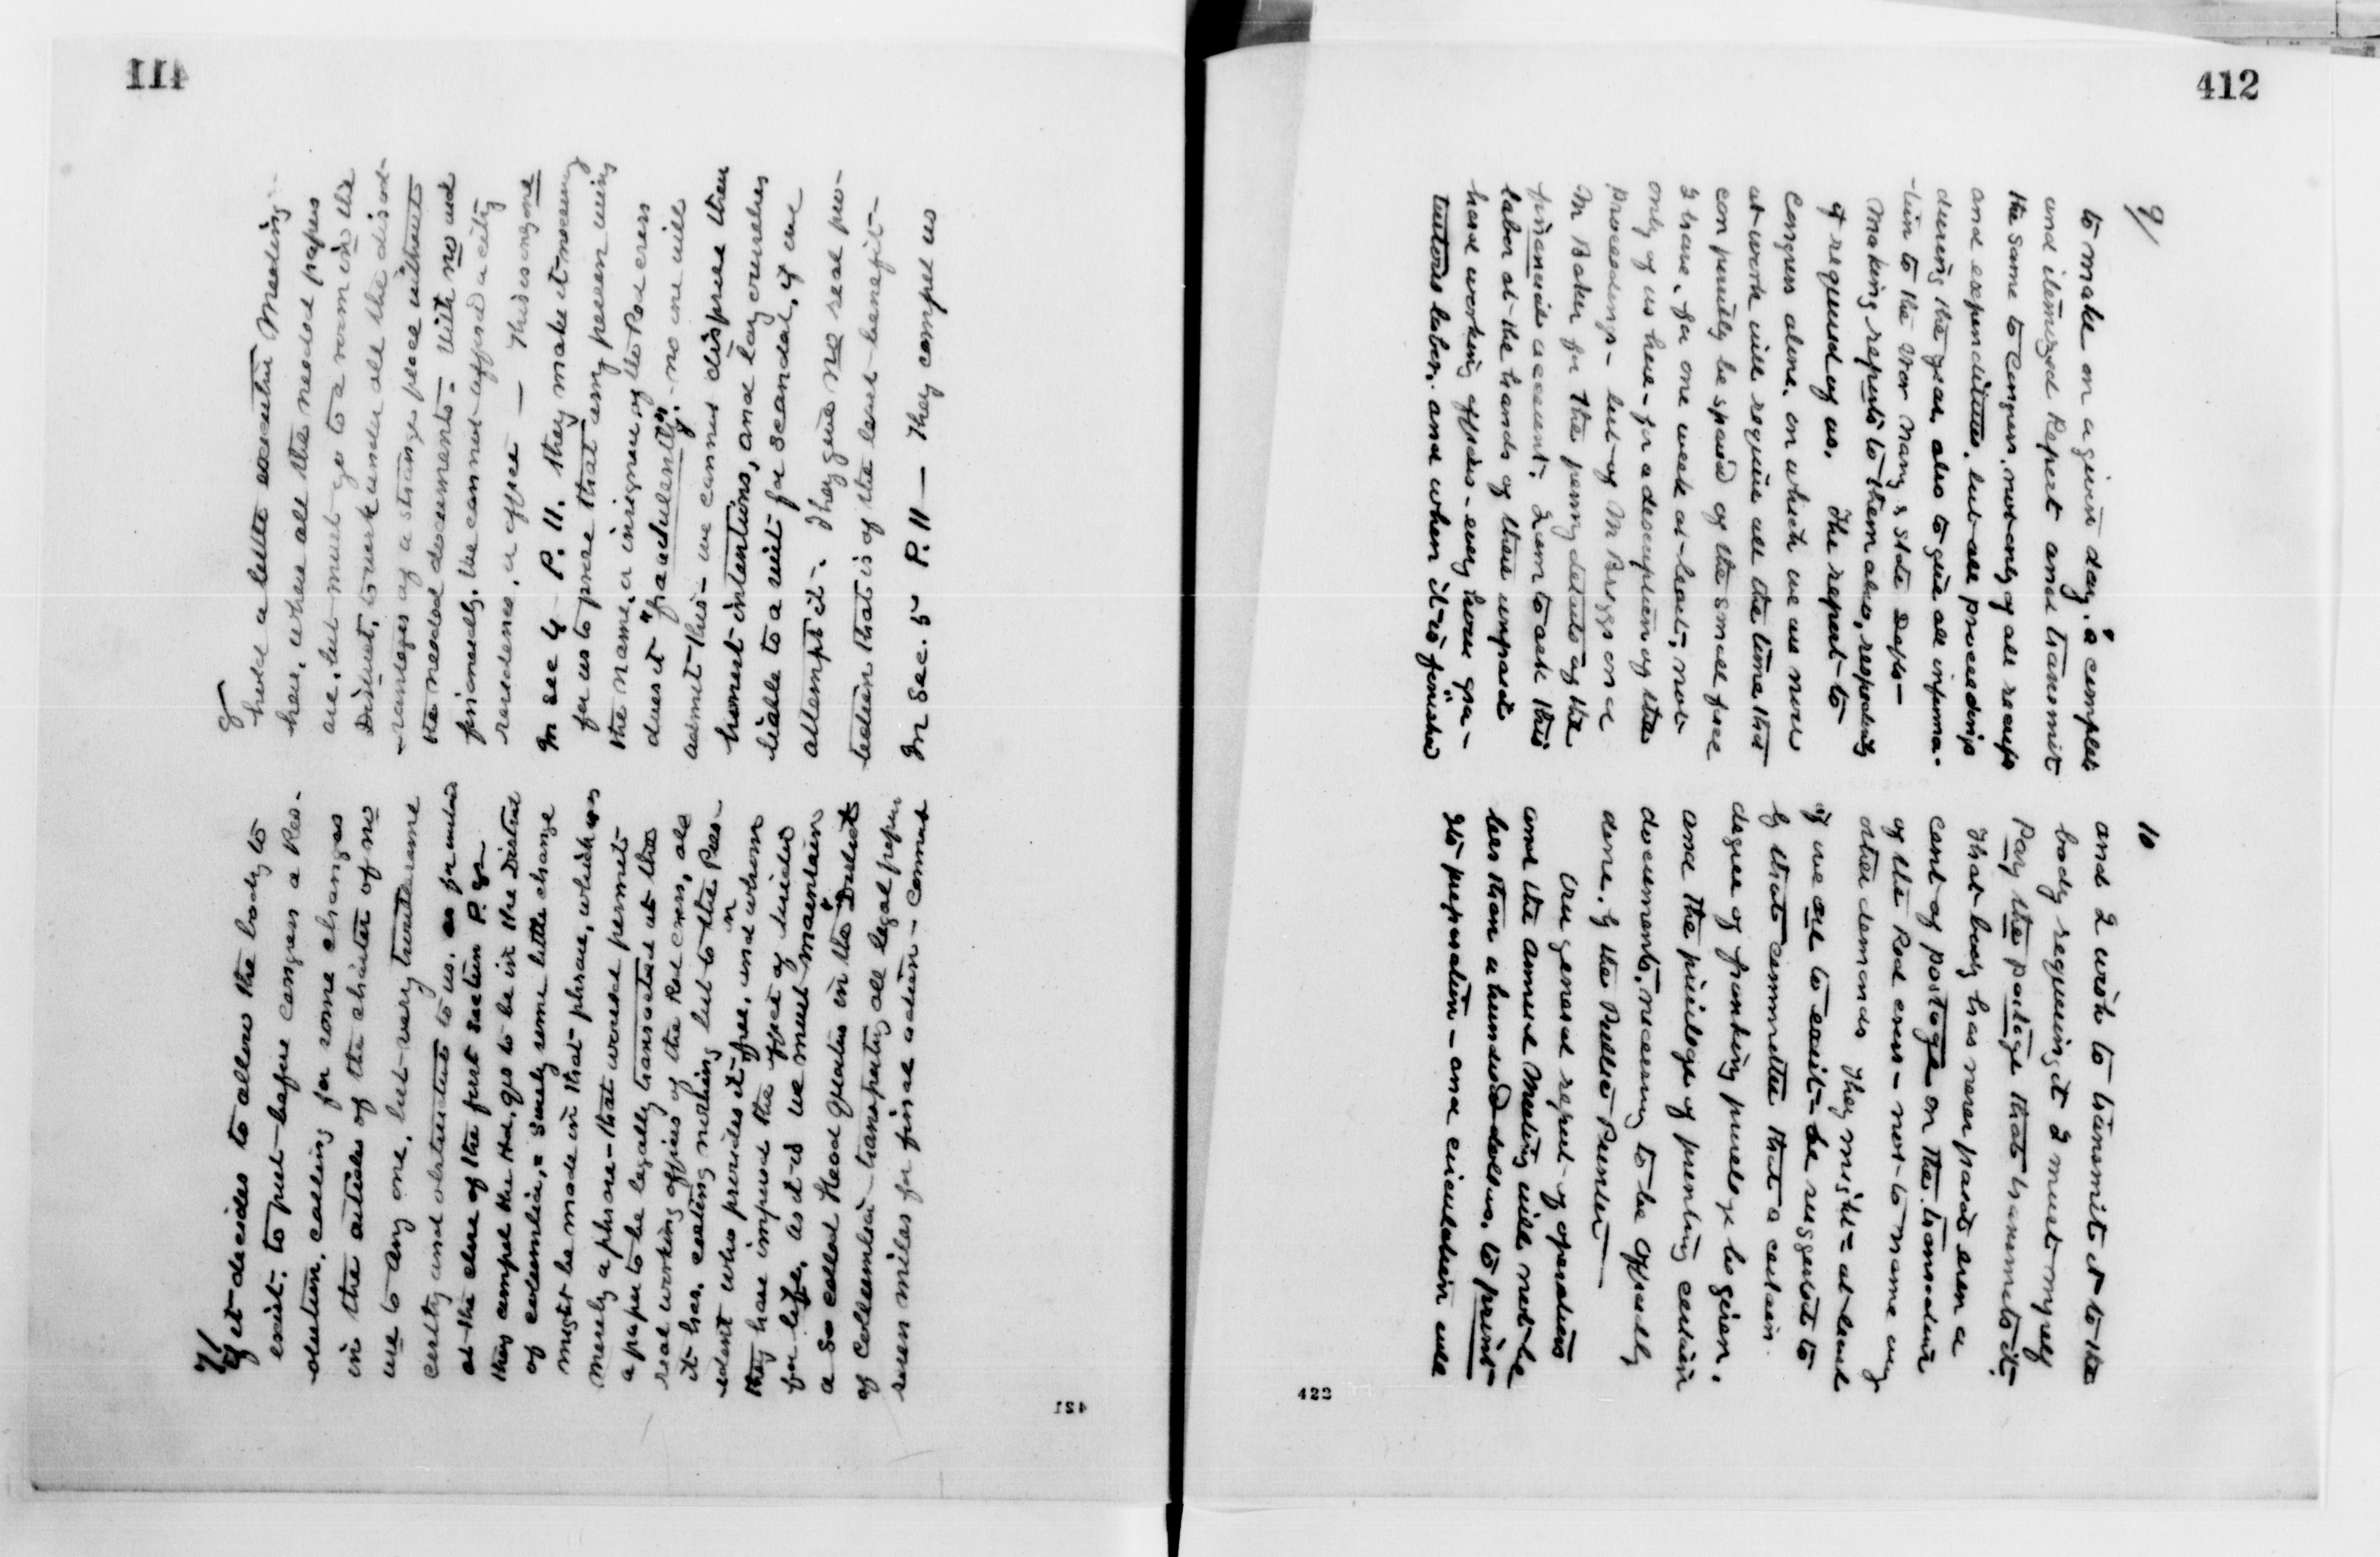 411
7/
If it decides to allow the body to
exist, to put before Congress a Res-
olution, calling for some changes
in the articles of the charter of no
use to any one, but very troublesome
costly and obstructive to us, as for instance
at the close of the first section P. 9
they compel the Hd. qrs to be in the District
of Columbia, = Surely some little change
might be made in that phrase, which was
merely a phrase - that would permit
a paper to be legally transacted at the
real working offices of the Red Cross, all
it has, costing nothing but to the Pres-
ident who provides it free, and whom
they have imposed the office of
for life, as it is we must maintain
a so called Head Quarters in the District
of Columbia - transporting all legal papers
seven miles for final action - cannot
8
hold a little executive Meeting
here, where all the needed papers
are, but must go to a room in the
District, to work under all the disad-
vantages of a strange place without
the needed documents - With no
financially, we cannot afford a city
residence, or office — This is any one
In sec 4 P. 11. they make it necessary
for us to prove that any person using
the name, or insignia of the Red Cross
does it "fraudulently" - no one will
admit this - we cannot disprove their
honest intentions, and lay ourselves
liable to a suit for scandal, if we
attempt it. They give no real pro-
tection that is of the least benefit -
In Sec. 5 P. 11 — They compel us
421
412
9/
to make on a given day, a complete
and itemized Report and transmit
the same to Congress, not only of all receipts
and expenditures, but all proceedings
during the year, also to give all informa-
tion to the War Navy & State Depts -
Making reports to them also, respectively
if required of us. The report to
Congress alone, on which we are now
at work will require all the time that
can possibly be spared of the small force
I have, for one week at least, not
only of us here - for a description of the
proceedings - but of Mr Briggs and
Mr Baker for the penny details of the
financial account; I am to ask this
labor at the hands of these unpaid
hard working officers - every hour gra-
tuitous labor, and when it is finished
10
and I wish to transmit it to the
body requiring it I must myself
Pay the postage that transmits it.
That body has never paid even a
cent of postage on the transaction
of the Red Cross - not to name any
other demands They might = at least
if we are to exist - be suggested to
by that committee that a certain
degree of franking privilege be given,
and the privilege of printing certain
documents, necessary to be officially
done, by the Public Printer —
Our general report of operations
and the annual Meeting will not be
less than a hundred dollars, to print
its preparation - and circulation will
422